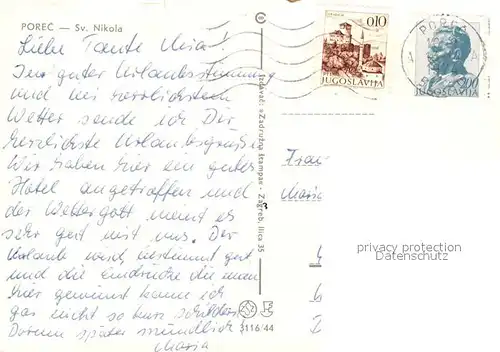 POREČ — Sv. Nikola
Liebe Tante Mia!
In guter Urlaubsstimmung
und bei herrlichstem
Wetter sende ich Dir
herzlichste Urlaubsgrüße.
Wir haben hier ein gutes
Hotel angetroffen und
der Wettergott meint es
sehr gut mit uns. Der
Urlaub wird bestimmt gut
und die Eindrücke die man
hier gewinnt kann ich
gar nicht so kurz schildern.
Darum später mündlich!
Maria
Izdavač: »Zadružna štampa« - Zagreb, Ilica 35
3116/44
0,10
JUGOSLAVIJA
POREČ
JUGOSLAVIJA
Frau
Maria
privacy protection
Datenschutz